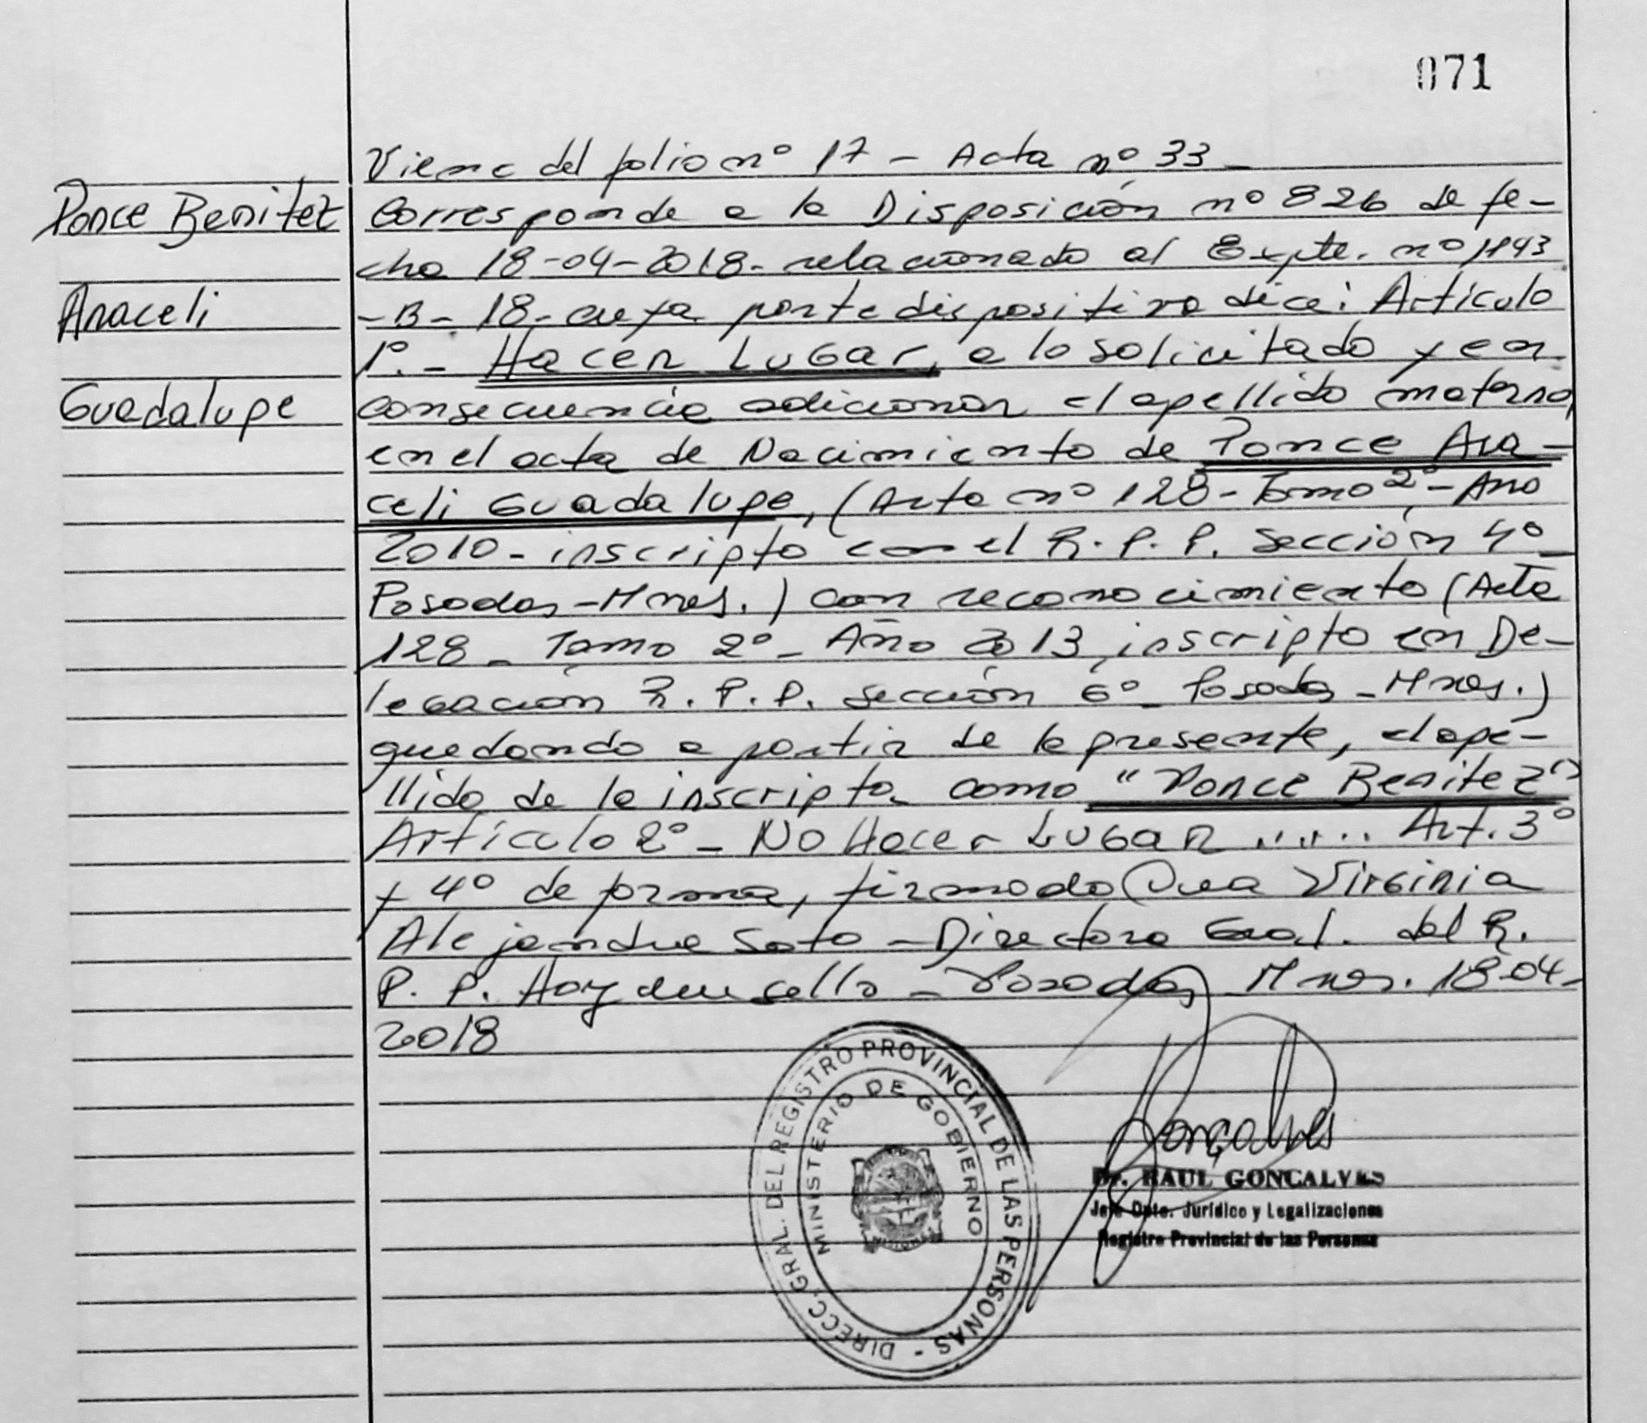 071
Viene del folio nº 17 - Acta nº 33 -
Ponce Benitez
Corresponde a la Disposición nº 826 de fe-
cha 18-04-2018- relacionado al Expte. nº 1143
Araceli
- B - 18- cuya parte dispositiva dice: Artículo
1º.- Hacer Lugar, a lo solicitado y en
Guadalupe
consecuencia adicionar el apellido materno
en el acta de Nacimiento de Ponce Ara-
celi Guadalupe, (Acta nº 128- Tomo 2º- Año
2010- inscripto en el R. P. P. Sección 4º
Posadas -Mnes.) con reconocimiento (Acta
128 - Tomo 2º - Año 2013, inscripto en De-
legación R. P. P. Sección 6º - Posadas - Mnes.)
quedando a partir de la presente, el ape-
llido de la inscripta como "Ponce Benitez"
Artículo 2º - No Hacer Lugar ..... Art. 3º
y 4º de forma, firmado Virginia
Alejandra Soto - Directora Gral. del R.
P. P. Hay un sello - Posadas, Mnes. 18-04-
2018
DIRECC. GRAL. DEL REGISTRO PROVINCIAL DE LAS PERSONAS -
MINISTERIO DE GOBIERNO
Gonçalves
Dr. RAUL GONCALVES
Jefe Dpto. Jurídico y Legalizaciones
Registro Provincial de las Personas